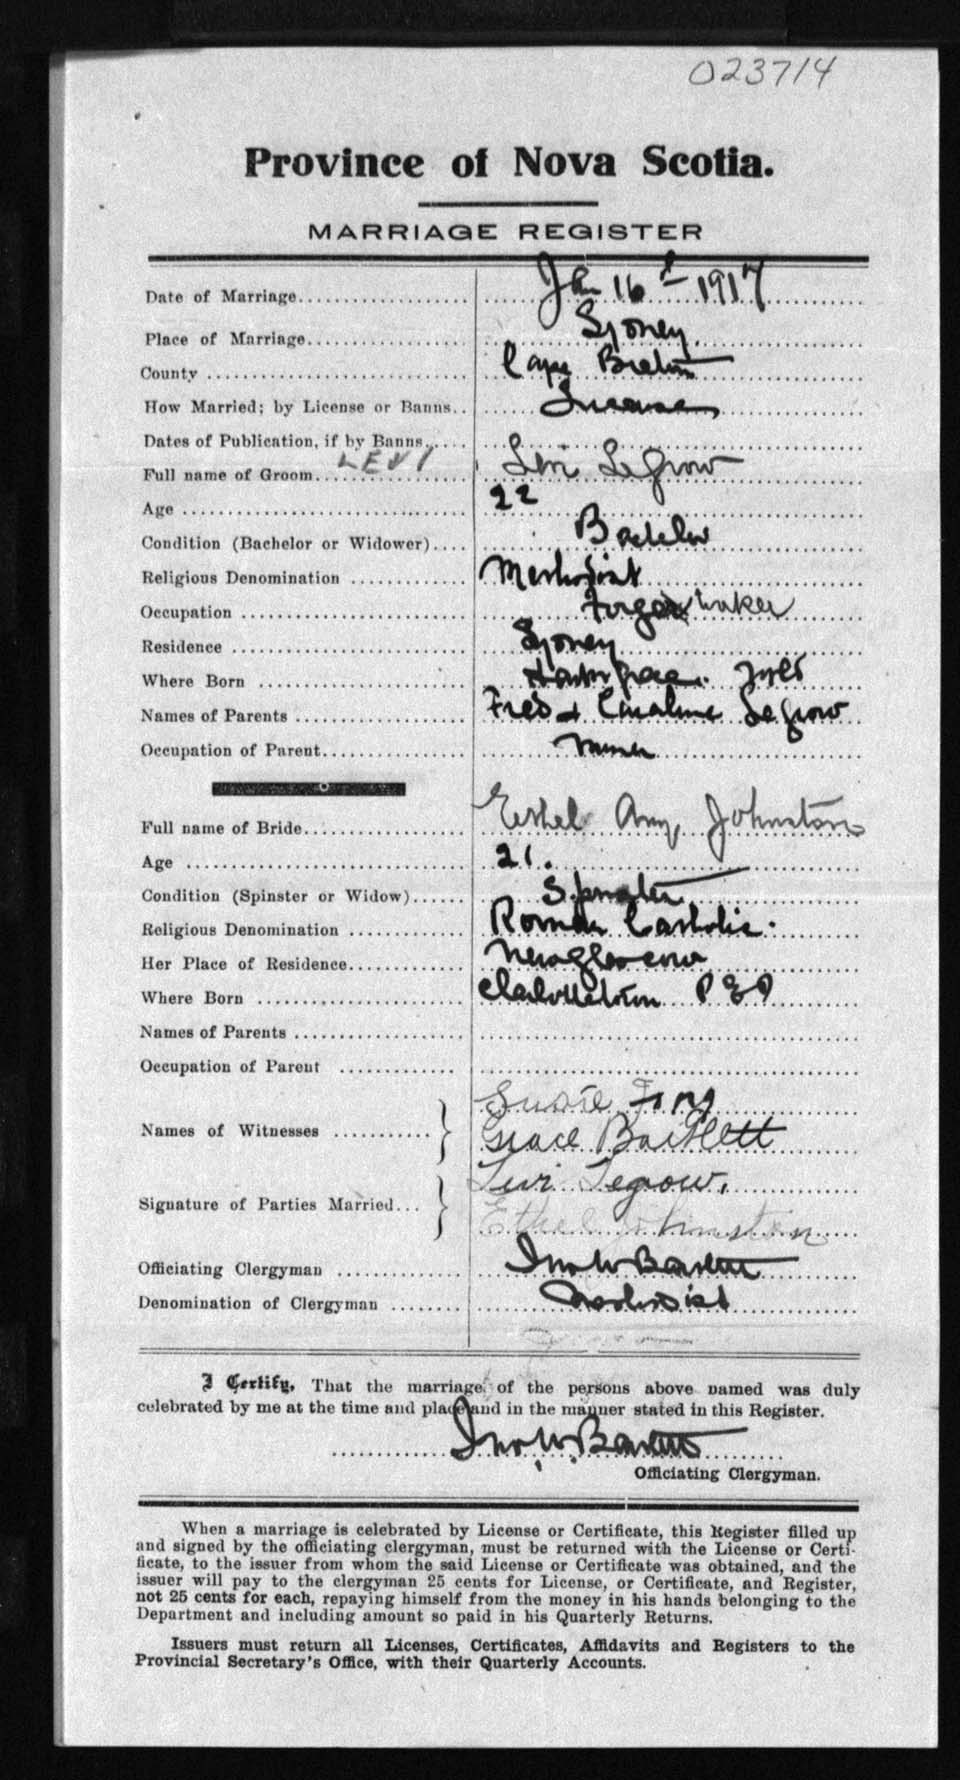 023714
Province of Nova Scotia.
MARRIAGE REGISTER
Date of Marriage Jan 16th 1917
Place of Marriage Sydney
County Cape Breton
How Married; by License or Banns License
Dates of Publication, if by Banns
LEVI
Full name of Groom Levi LeGrow
Age 22
Condition (Bachelor or Widower) Bachelor
Religious Denomination Methodist
Occupation
Residence Sydney
Where Born Harbor Grace. Nfld
Names of Parents Fred & Caroline LeGrow
Occupation of Parent
Full name of Bride Ethel Amy Johnston
Age 21.
Condition (Spinster or Widow) Spinster
Religious Denomination Roman Catholic.
Her Place of Residence New Glasgow
Where Born Charlottetown P E I
Names of Parents
Occupation of Parent
Names of Witnesses Susie
Grace Bartlett
Signature of Parties Married Levi Legrow,
Ethel Johnston
Officiating Clergyman Jno W Bartlett
Denomination of Clergyman Methodist
I Certify, That the marriage of the persons above named was duly
celebrated by me at the time and place and in the manner stated in this Register.
Jno W. Bartlett
Officiating Clergyman.
When a marriage is celebrated by License or Certificate, this Register filled up
and signed by the officiating clergyman, must be returned with the License or Certi-
ficate, to the issuer from whom the said License or Certificate was obtained, and the
issuer will pay to the clergyman 25 cents for License, or Certificate, and Register,
not 25 cents for each, repaying himself from the money in his hands belonging to the
Department and including amount so paid in his Quarterly Returns.
Issuers must return all Licenses, Certificates, Affidavits and Registers to the
Provincial Secretary's Office, with their Quarterly Accounts.